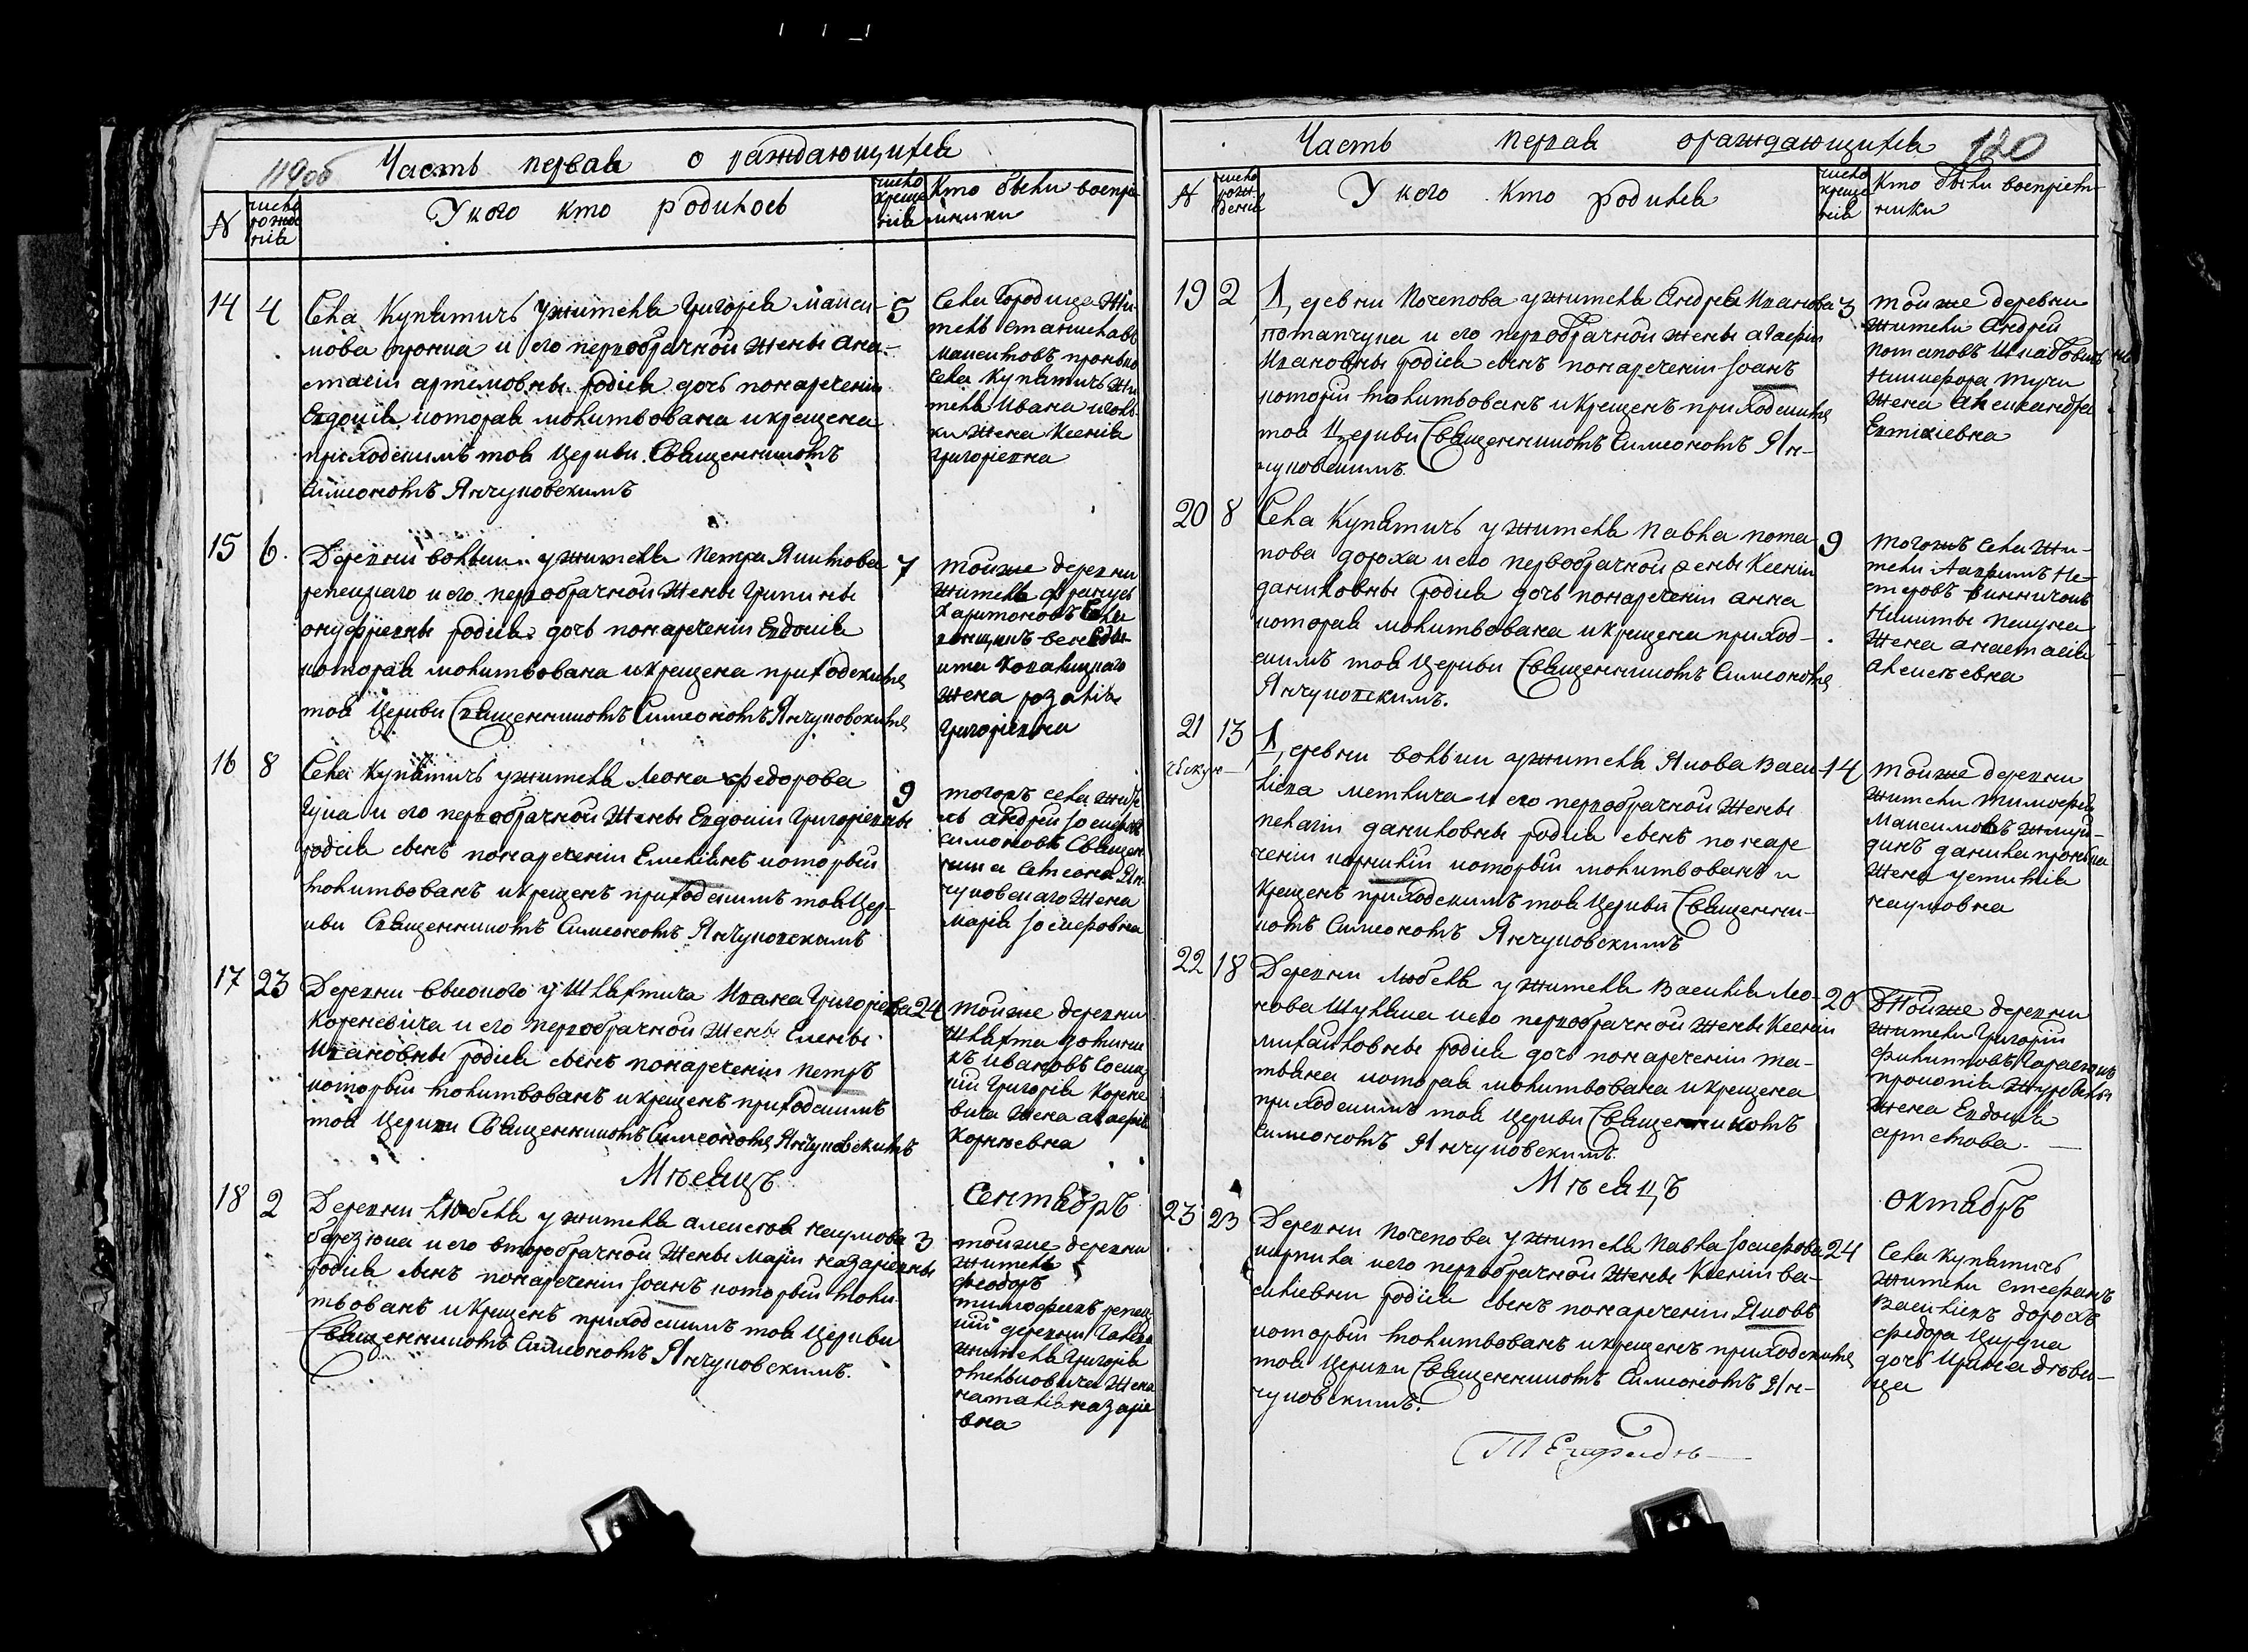 119об
Часть первая о раждающихся
№
число рожде нія
У кого кто родилось
число креще нія
Кто были воспрі емники
14 4 Села Купятичъ у жителя Григорія Макси- 5
мова пронка и его первобрачной жены Ана-
стасіи артемовны родися дочь понаречении
Евдокія которая молитвована и крещена
приходскимъ тоя Церкви Священникомъ
Симеономъ Янчуковскимъ
Села Городища жи-
тель
Максимовъ
Села Купятичъ жи-
теля Ивана
жена Ксенія
Григоріевна
15 6 Деревни вольки у жителя Петра Якимова 7
репецкаго и его первобрачной жены Грипины
онуфріевны родися дочь понаречении Евдокія
которая молитвована и крещена приходскимъ
тоя Церкви Священникомъ Симеономъ Янчуковскимъ
тойже деревни
житель францъ
Харитоновъ Села
жена розалія
Григоріевна
16 8 Села Купятичъ у жителя Леона федорова 9
Гука и его первобрачной жены Евдокіи Григоріевны
родися сынъ понаречении Емеліянъ который
молитвованъ и крещенъ приходскимъ тоя Цер-
кви Священникомъ Симеономъ Янчуковскимъ
тогожъ села жите
ль андрей іосифовъ
симоновъ Священ
ника Симеона Ян-
чуковскаго жена
марія іосифовна
17 23 Деревни высокого у Шляхтича Ивана Григоріева 24
Кореневича и его первобрачной жены Елены
Ивановны родися сынъ понаречении петръ
который молитвованъ и крещенъ приходскимъ
тоя Церкви Священникомъ Симеономъ Янчуковскимъ
тойже деревни
шляхта
къ ивановъ
кій Григорія Корене
вича жена агафія
Корнѣевна
Мѣсяцъ Сентябрь
18 2 Деревни Любеля у жителя алексея наумова 3
березюка и его второбрачной жены Маріи назаріевны
родися сынъ понаречении іоанъ который моли
твованъ и крещенъ приходскимъ тоя Церкви
Священникомъ Симеономъ Янчуковскимъ.
тойже деревни
житель
феодоръ
тимофеевъ репец
кій деревни
жителя Григорія
жена
наталія назаріе
вна
120
Часть первая ораждающихся
№
число рож денія
У кого кто родился
число креще нія
Кто были воспріем-
ники
19 2 Деревни Почепова у жителя Андрея Иванова 3
потапчука и его первобрачной жены агафіи
Ивановны родися сынъ понаречении іоанъ
которій молитвованъ и крещенъ приходскимъ
тоя Церкви Священникомъ Симеономъ Ян-
чуковскимъ.
тойже деревни
жители Андрей
потаповъ
Никифора
жена александра
20 8 Села Купятичъ у жителя павла пота 9
пова дороха и его первобрачной жены Ксеніи
даниловны родися дочь понаречении анна
которая молитвована и крещена приход-
скимъ тоя Церкви Священникомъ Симеономъ
Янчуковскимъ.
тогожъ села жи-
тели Не-
стеровъ
Никиты
жена анастасія
алексѣевна
21 13 Деревни вольки у жителя Якова васи- 14
ліева метлича и его первобрачной жены
пелагіи даниловны родися сынъ понаре
ченіи корнилій который молитвованъ и
крещенъ приходскимъ тоя Церкви Священни-
комъ Симеономъ Янчуковскимъ
тойже деревни
жители тимофей
Максимовъ
данила пронька
жена
наумовна
22 18 Деревни Любеля у жителя василія Лео- 20
нова Шуляка иего первобрачной жены Ксеніи
михайловны родися дочь понаречении та-
тьяна которая молитвована и крещена
приходскимъ тоя Церкви Священникомъ
Симеономъ Янчуковскимъ.
Тойже деревни
жители Григорій
филиповъ
прокопія
жена Евдокія
артемова
Мѣсяцъ октябрь
23 23 Деревни почепова у жителя павла іосифова 24
иего первобрачной жены Ксеніи ва-
силіевни родися сынъ понаречении Яковъ
который молитвованъ и крещенъ приходскимъ
тоя Церкви Священникомъ Симеономъ Ян-
чуковскимъ.
Села купятичъ
жители стефанъ
василіевъ дорохъ
федора
дочь Ирина дѣви-
ца